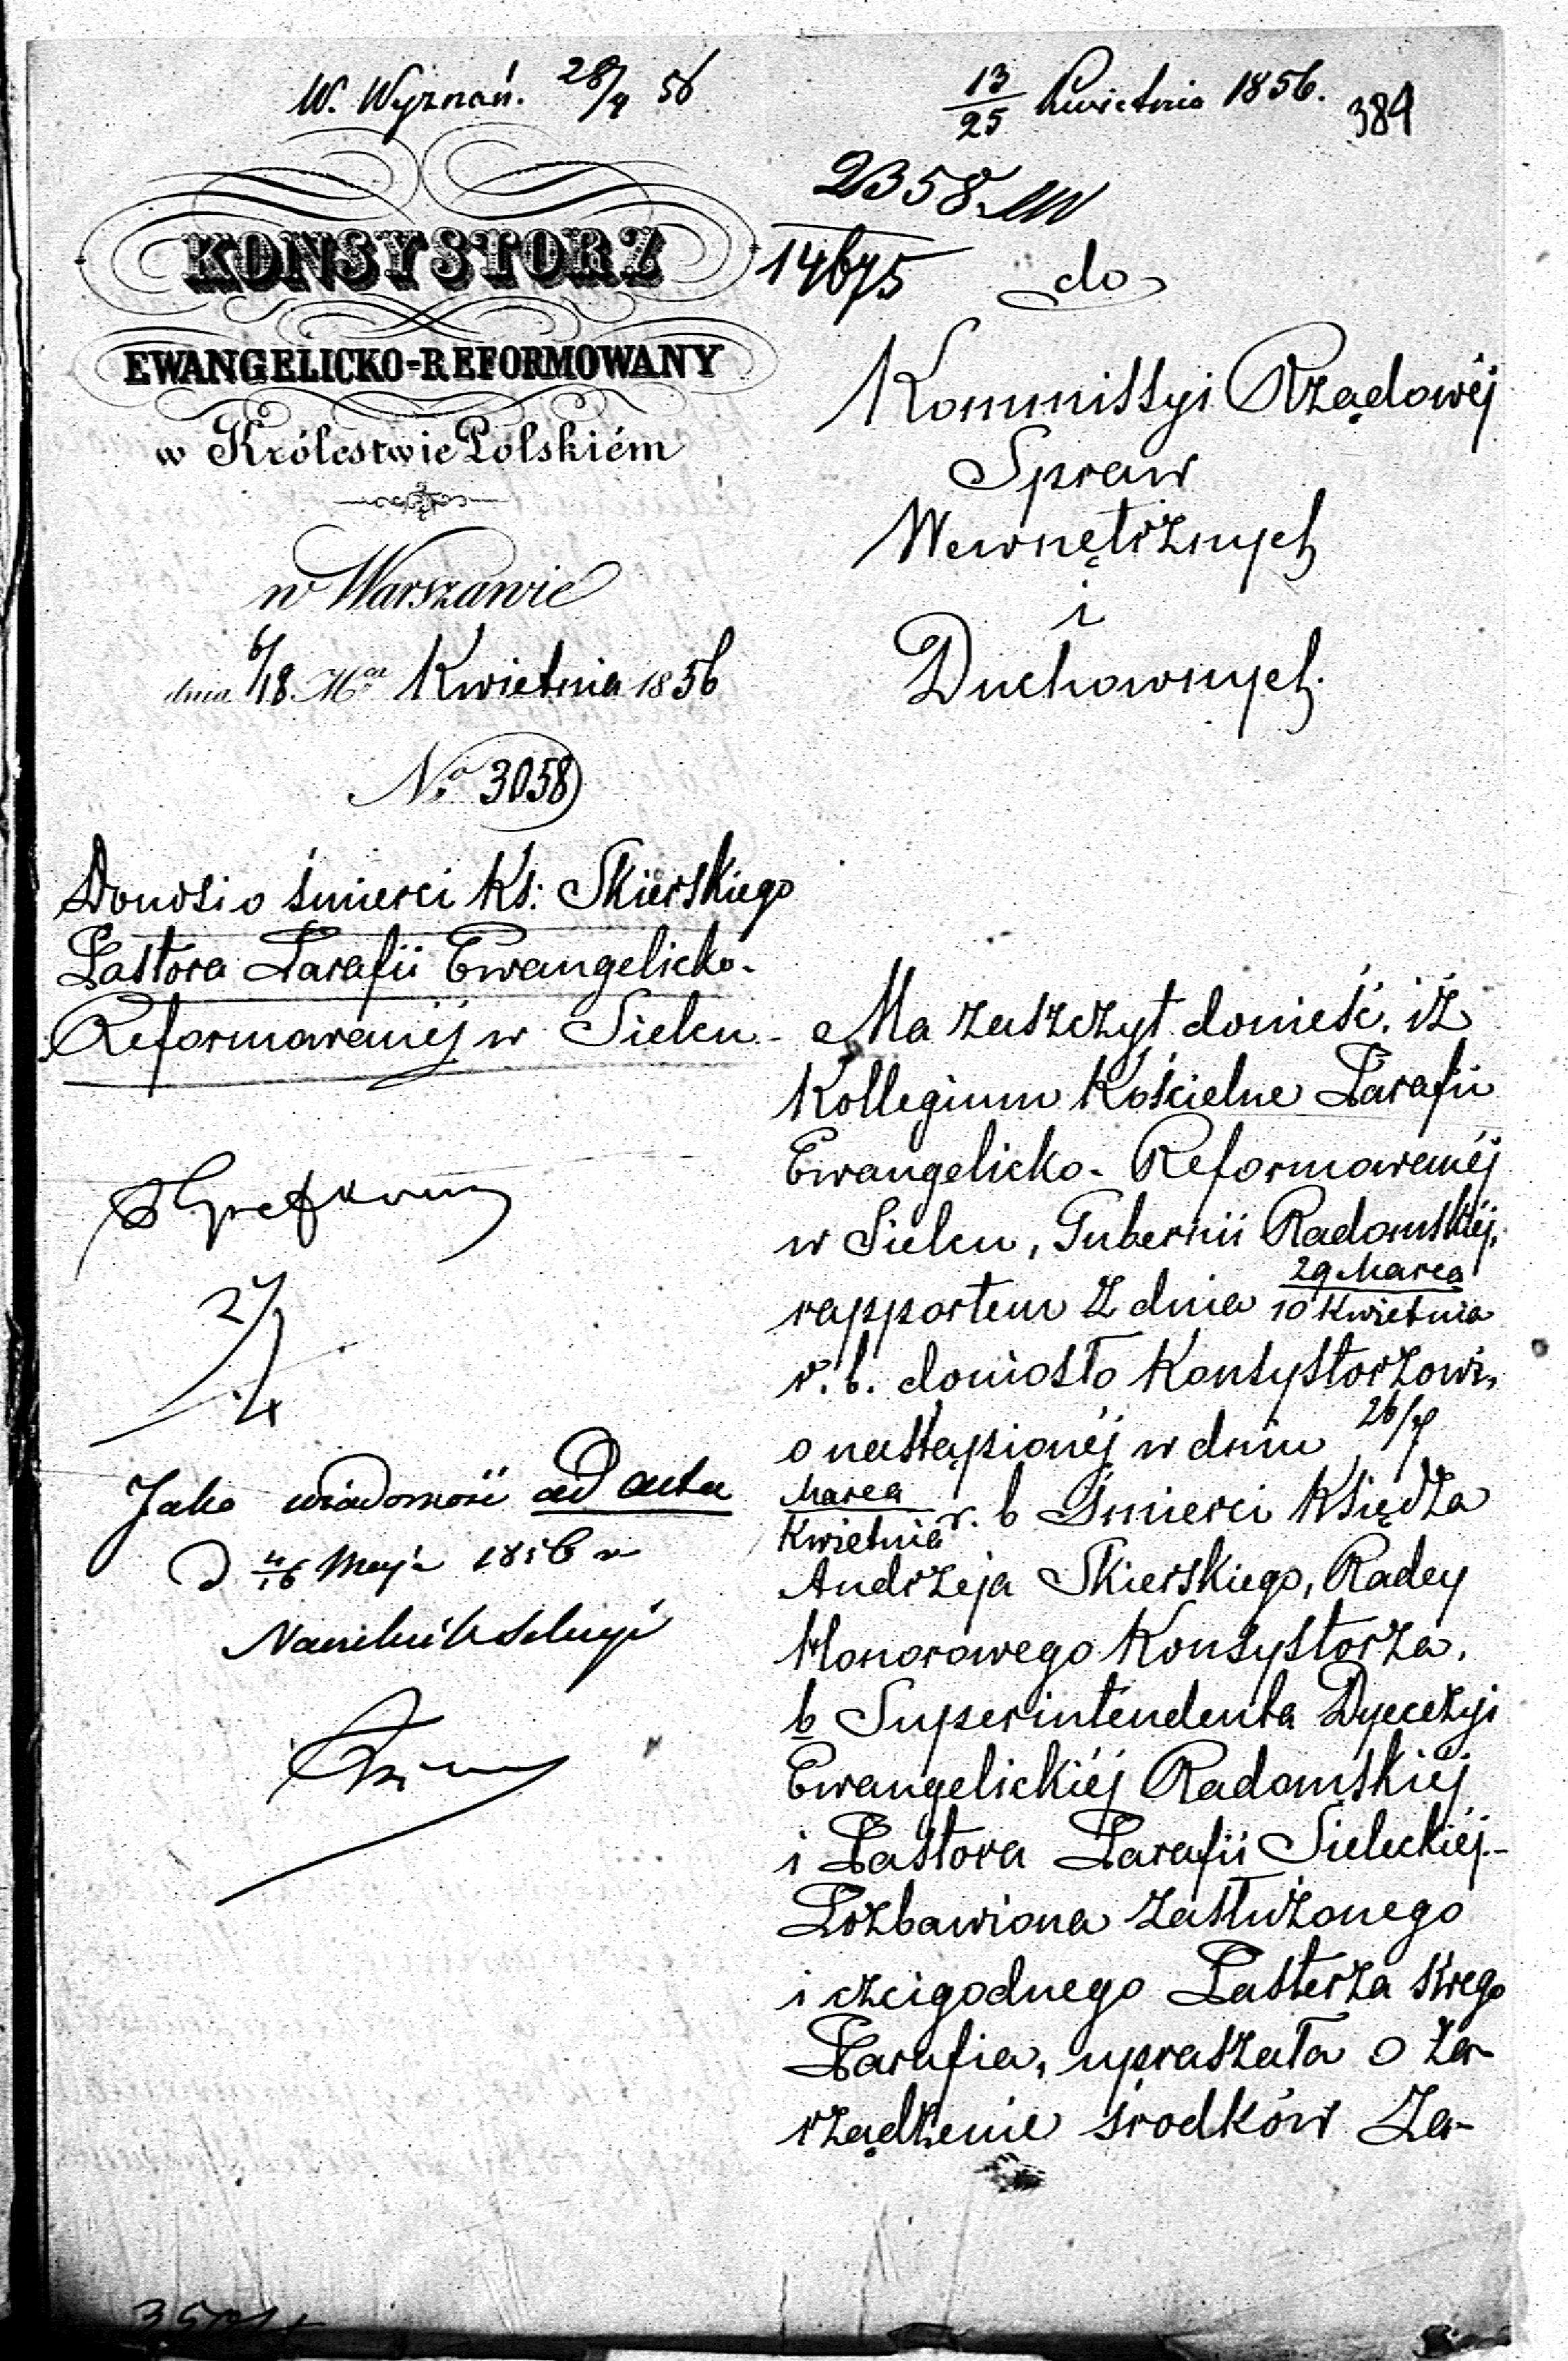 W. Wyznań. 28/4 56
13/25 Kwietnia 1856.
384
2358
14675
KONSYSTORZ
EWANGELICKO-REFORMOWANY
w Królestwie Polskiém
w Warszawie
dnia 6/18 Mca Kwietnia 1856
No 3058
Donosi o śmierci Ks: Skierskiego
Pastora Parafii Ewangelicko-
Reformowanéj w Sielcu
Jako wiadomość ad acta
D 4/16 Maja 1856 r
Naczelnik Sekcyi
do
Kommissyi Rządowéj
Spraw
Wewnętrznych
i
Duchownych.
Ma zaszczyt donieść, iż
Kollegium Kościelne Parafii
Ewangelicko-Reformowanéj
w Sielcu, Gubernii Radomskiéj,
rapportem z dnia 29 Marca / 10 Kwietnia
r. b. doniosło Konsystorzowi,
o nastąpionéj w dniu 26/7
Marca / Kwietnia r. b śmierci Księdza
Andrzeja Skierskiego, Radcy
Honorowego Konsystorza,
b Superintendenta Dyecezyi
Ewangelickiéj Radomskiéj
i Pastora Parafii Sieleckiéj.-
Pozbawiona zasłużonego
i czcigodnego Pasterza swego
Parafia, upraszała o za-
rządzenie środków za-